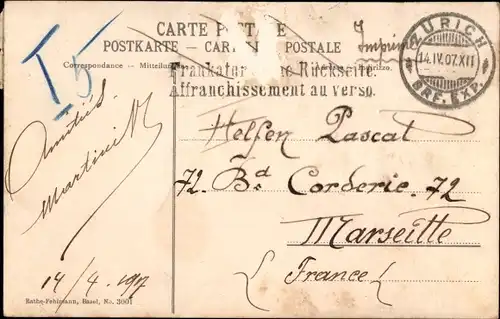 CARTE POSTALE
POSTKARTE – CARTOLINA POSTALE
Correspondance – Mitteilung
Frankatur Rückseite.
Affranchissement au verso.
Imprimé
ZÜRICH
14.IV.07.XII
BRF. EXP.
T 5
Amitiés
Martini
14/4.1907
Helfen Pascal
72. Bd. Corderie. 72
Marseille
(France)
Rathe-Fehlmann, Basel, No. 3001